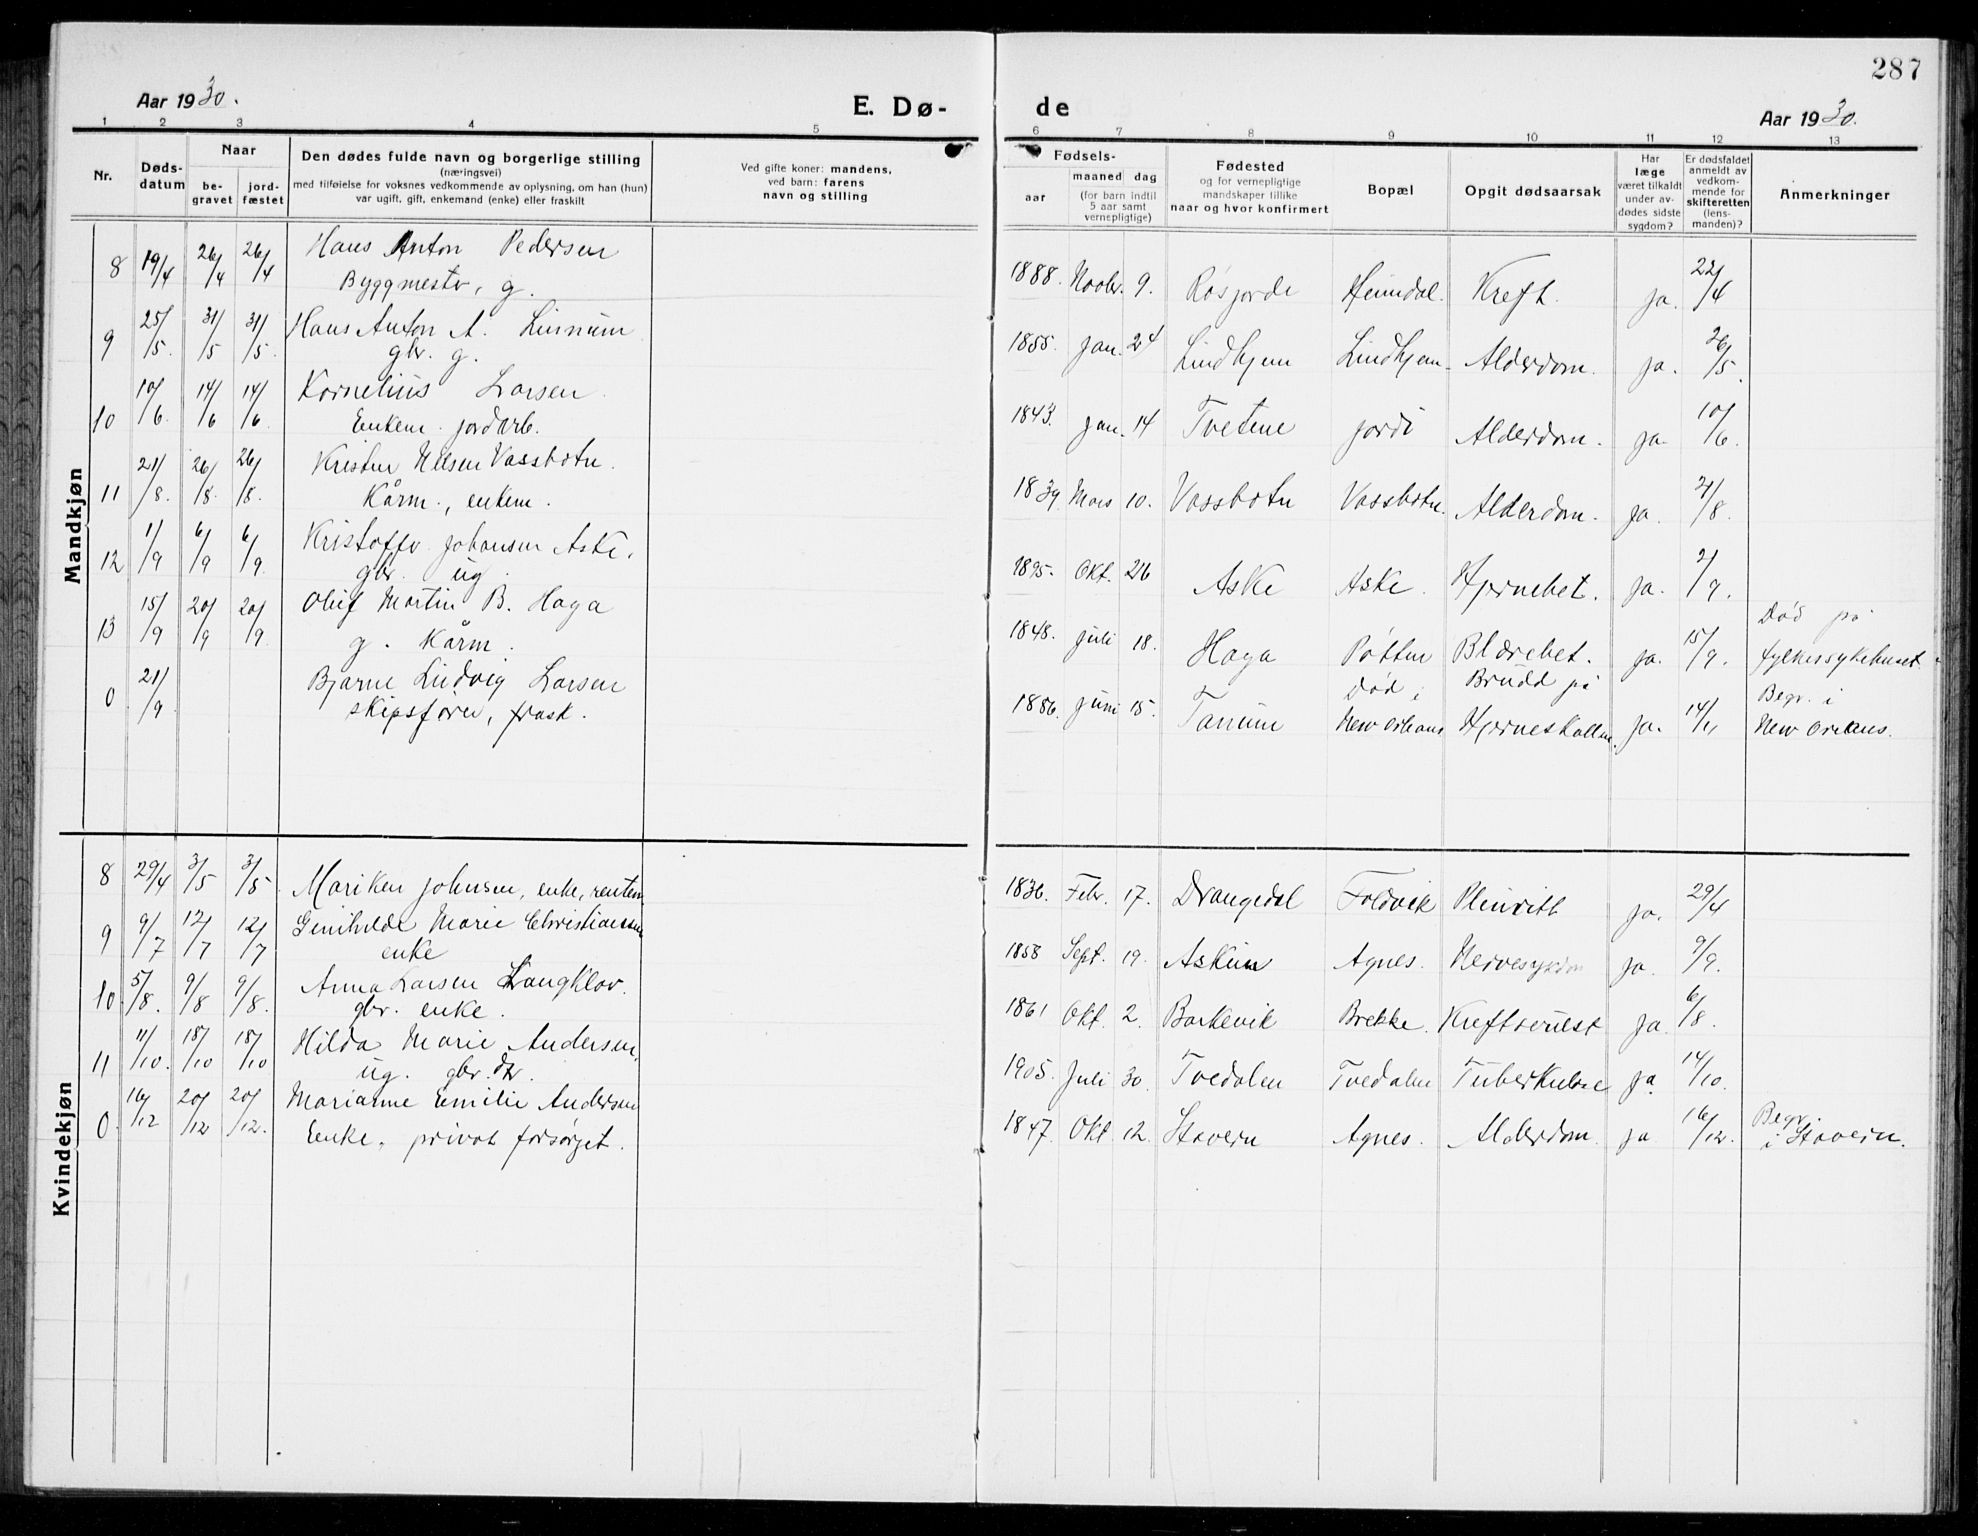 287
Aar 1930.
E. Dø-
de
Aar 1930.
1 2 3 4 5 6 7 8 9 10 11 12 13
Nr.
Døds-
datum
Naar
be-
gravet
jord-
fæstet
Den dødes fulde navn og borgerlige stilling
(næringsvei)
med tilføielse for voksnes vedkommende av oplysning, om han (hun)
var ugift, gift, enkemand (enke) eller fraskilt
Ved gifte koner: mandens,
ved barn: farens
navn og stilling
Fødsels-
aar
maaned dag
(for barn indtil
5 aar samt
vernepligtige)
Fødested
og for vernepligtige
mandskaper tillike
naar og hvor konfirmert
Bopæl
Opgit dødsaarsak
Har
læge
været tilkaldt
under av-
dødes sidste
sygdom?
Er dødsfaldet
anmeldt av
vedkom-
mende for
skifteretten
(lens-
manden)?
Anmerkninger
Mandkjøn
8 19/4 26/4 26/4 Hans Anton Pedersen
Byggmester, g.
1888. Novbr. 9. Råsjorde Heimdal. Kreft. ja. 22/4
9 25/5. 31/5 31/5. Hans Anton A. Linnum
gbr. g.
1855. Jan. 24 Lindhjem Lindhjem Alderdom. ja. 26/5.
10 10/6. 14/6 14/6. Kornelius Larsen.
Enkem. jordarb.
1843. Jan. 14 Tvetene Jordi Alderdom. ja. 10/6.
11 21/8. 26/8. 26/8. Krister Nilsen Vassbotn.
Kårm., enkem.
1839 Mars 10. Vassbotn Vassbotn. Alderdom. ja. 21/8.
12 1/9 6/9 6/9. Kristoffer Johansen Aske.
gbr. ug.
1895. Okt. 26 Aske Aske. Hjernebet. ja. 2/9.
13 15/9 20/9 20/9. Oluf Martin B. Haga
g. Kårm.
1848. Juli 18. Haga Pøtten Blærebet. ja. 15/9. Død på
fylkessykehuset.
0 21/9. Bjarne Ludvig Larsen
skipsfører, frask.
1886. Juni 15. Tanum Død i
New Orleans Brudd på
Hjerneskallen. ja. 14/11 Begr. i
New Orleans.
Kvindekjøn
8 29/4 3/5 3/5 Mariken Johnsen, enke, rentem
1836. Febr. 17. Drangedal Foldvik Pleuritt ja. 29/4
9 9/7 12/7 12/7 Gunhilde Marie Christiansen
enke
1858 Sept. 19. Askim Agnes. Nervesykdom ja. 9/9.
10 5/8. 9/8 9/8. Anna Larsen Langklov.
gbr. enke.
1861 Okt. 2. Barkevik Brekke. Kreftsvulst ja. 6/8.
11 11/10. 18/10 18/10 Hilda Marie Andersen,
ug. gbr. dtr.
1905. Juli 30. Tvedalen Tvedalen Tuberkulose ja. 14/10.
0. 16/12 20/12 20/12. Marianne Emilie Andersen
Enke, privat forsørget.
1847. Okt. 12. Stavern Agnes. Alderdom. ja 16/12. Begr.
i Stavern.